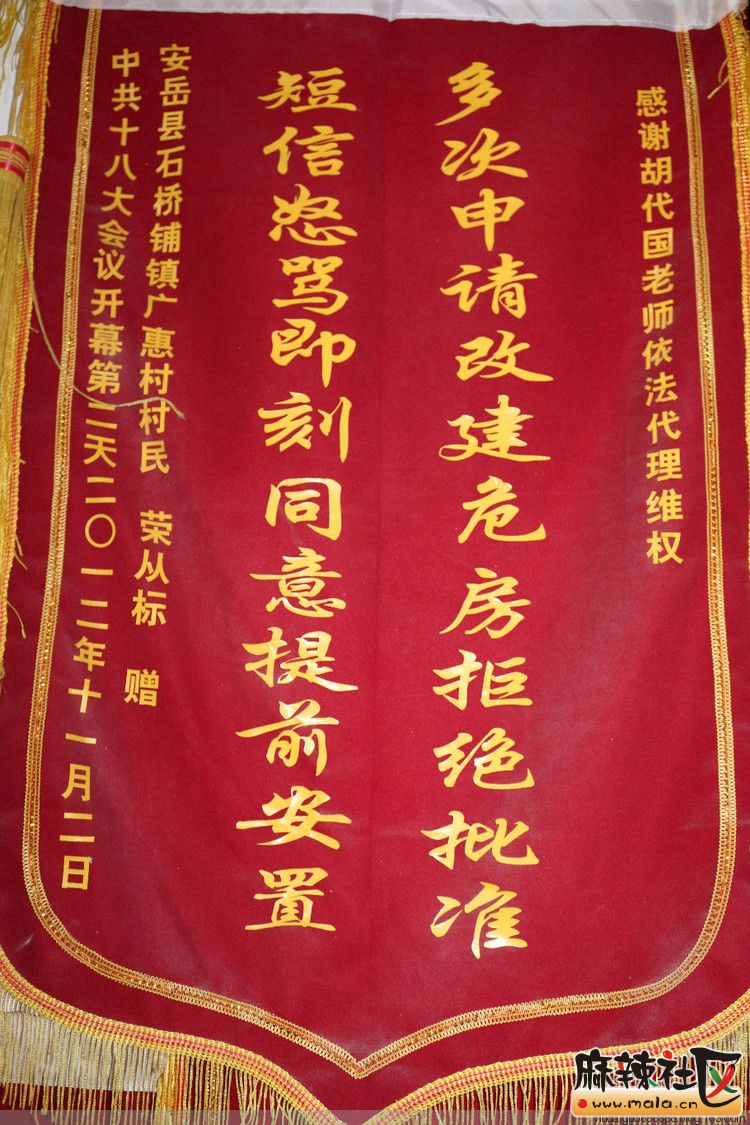 感谢胡代国老师依法代理维权
多次申请改建危房拒绝批准
短信怒骂即刻同意提前安置
安岳县石桥铺镇广惠村村民 荣从标 赠
中共十八大会议开幕第二天二〇一二年十一月二日
麻辣社区
www.mala.cn